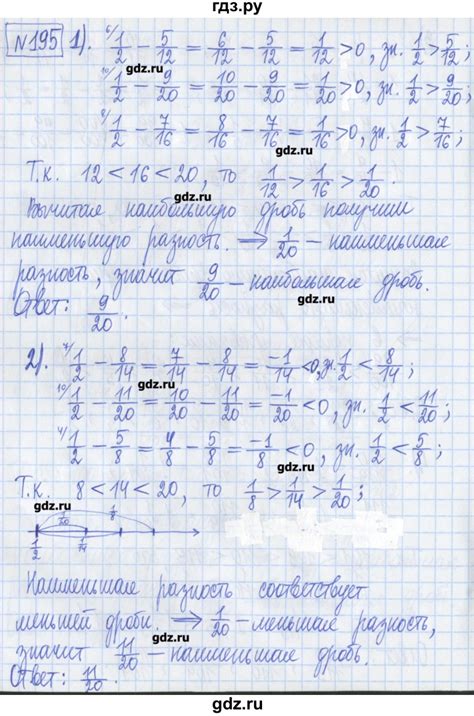 гдз.ру
№195 1). ⁶⁄ 1/2 - 5/12 = 6/12 - 5/12 = 1/12 >0, зн. 1/2 > 5/12;
gdz.ru
¹⁰⁄ 1/2 - 9/20 = 10/20 - 9/20 = 1/20 >0, зн. 1/2 > 9/20;
gdz.ru
⁸⁄ 1/2 - 7/16 = 8/16 - 7/16 = 1/16 >0, зн. 1/2 > 7/16;
gdz.ru
Т.к. 12 < 16 < 20, то 1/12 > 1/16 > 1/20.
gdz.ru
Вычитая наибольшую дробь получим
наименьшую разность. ⇒ 1/20 - наименьшая
gdz.ru
разность, значит 9/20 - наибольшая дробь.
Ответ: 9/20.
gdz.ru
2). ⁷⁄ 1/2 - 8/14 = 7/14 - 8/14 = -1/14 <0, зн. 1/2 < 8/14
gdz.ru
¹⁰⁄ 1/2 - 11/20 = 10/20 - 11/20 = -1/20 <0, зн. 1/2 < 11/20
gdz.ru
⁴⁄ 1/2 - 5/8 = 4/8 - 5/8 = -1/8 <0, зн. 1/2 < 5/8;
gdz.ru
Т.к. 8 < 14 < 20, то 1/8 > 1/14 > 1/20;
gdz.ru
1/8
1/20
1/2 1/14
gdz.ru
Наименьшая разность соответствует
gdz.ru
меньшей дроби. ⇒ 1/20 - меньшая разность,
gdz.ru
значит 11/20 - наименьшая дробь.
Ответ: 11/20.
gdz.ru